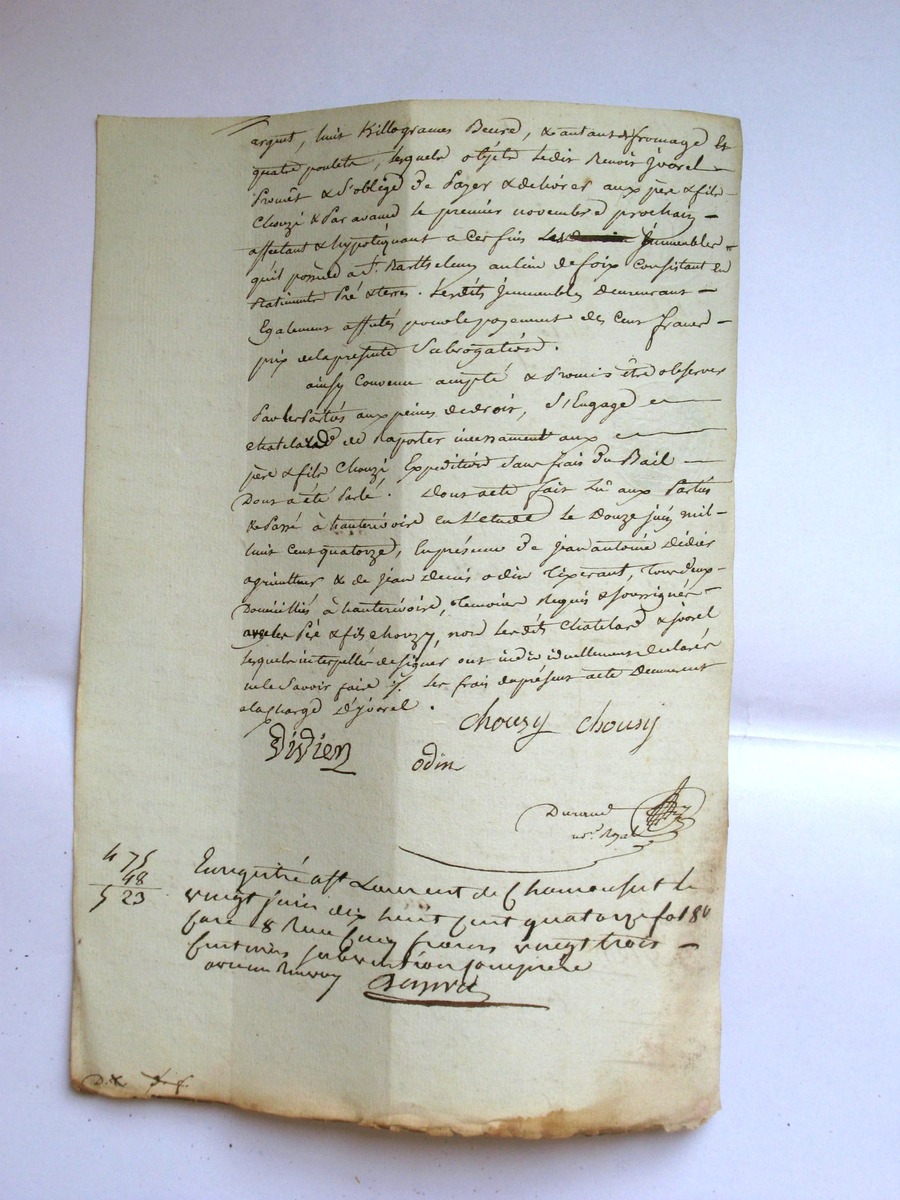 argent, huit Killogrames Beure, & autant de fromage Et
quatre poulets, lesquels objéts Ledit Benoit jvorel
Promêt & S'oblige De Payer & delivrer aux père & fils
Chouzi & Par avand le premier novembre prochain
affectant & hypotéquant a Ces fins Immeubles
qu'il possède a St. Barthelemy au lieu de foix Consistant En
Batiments Pré & terres. Lesdits Immeubles Demeurant
Egalement affectés pour le payement des Cent francs
prix de la présente Subrogation.
ainsy Convenu accepté & Promis être observer
Par les Partiés aux peines de droit, S'Engage
chatelard de Raporter incessament aux
père & fils Chouzi Expedition Sans frais Du Bail
Dont a été Parlé. Dont acte fait Lû aux Partiés
& Passé à hauterivoire En L'etude Le Douze juin mil
huit Cent quatorze, En présence De jean antoine Didier
agriculteur & de jean Denis odin tixerant, tous deux
Domiciliés à hauterivoire, temoins Requis & soussignés
avec les Pére & fils chouzy, non Lesdits Chatelard & jvorel
lesquels interpellés de signer ont individuellement declarés
ne le Savoir faire ./. Les frais du présent acte Demeurent
a la Charge D'jvorel.
chouzy chouzy
Didier odin
Durand
nore. Royal
4 75
48
5 23
Enregistré a St Laurent de Chamousset le
vingt juin dix huit Cent quatorze fo 180
Case 8 Reçu Cinq francs vingt trois
Centimes subvention Comprise